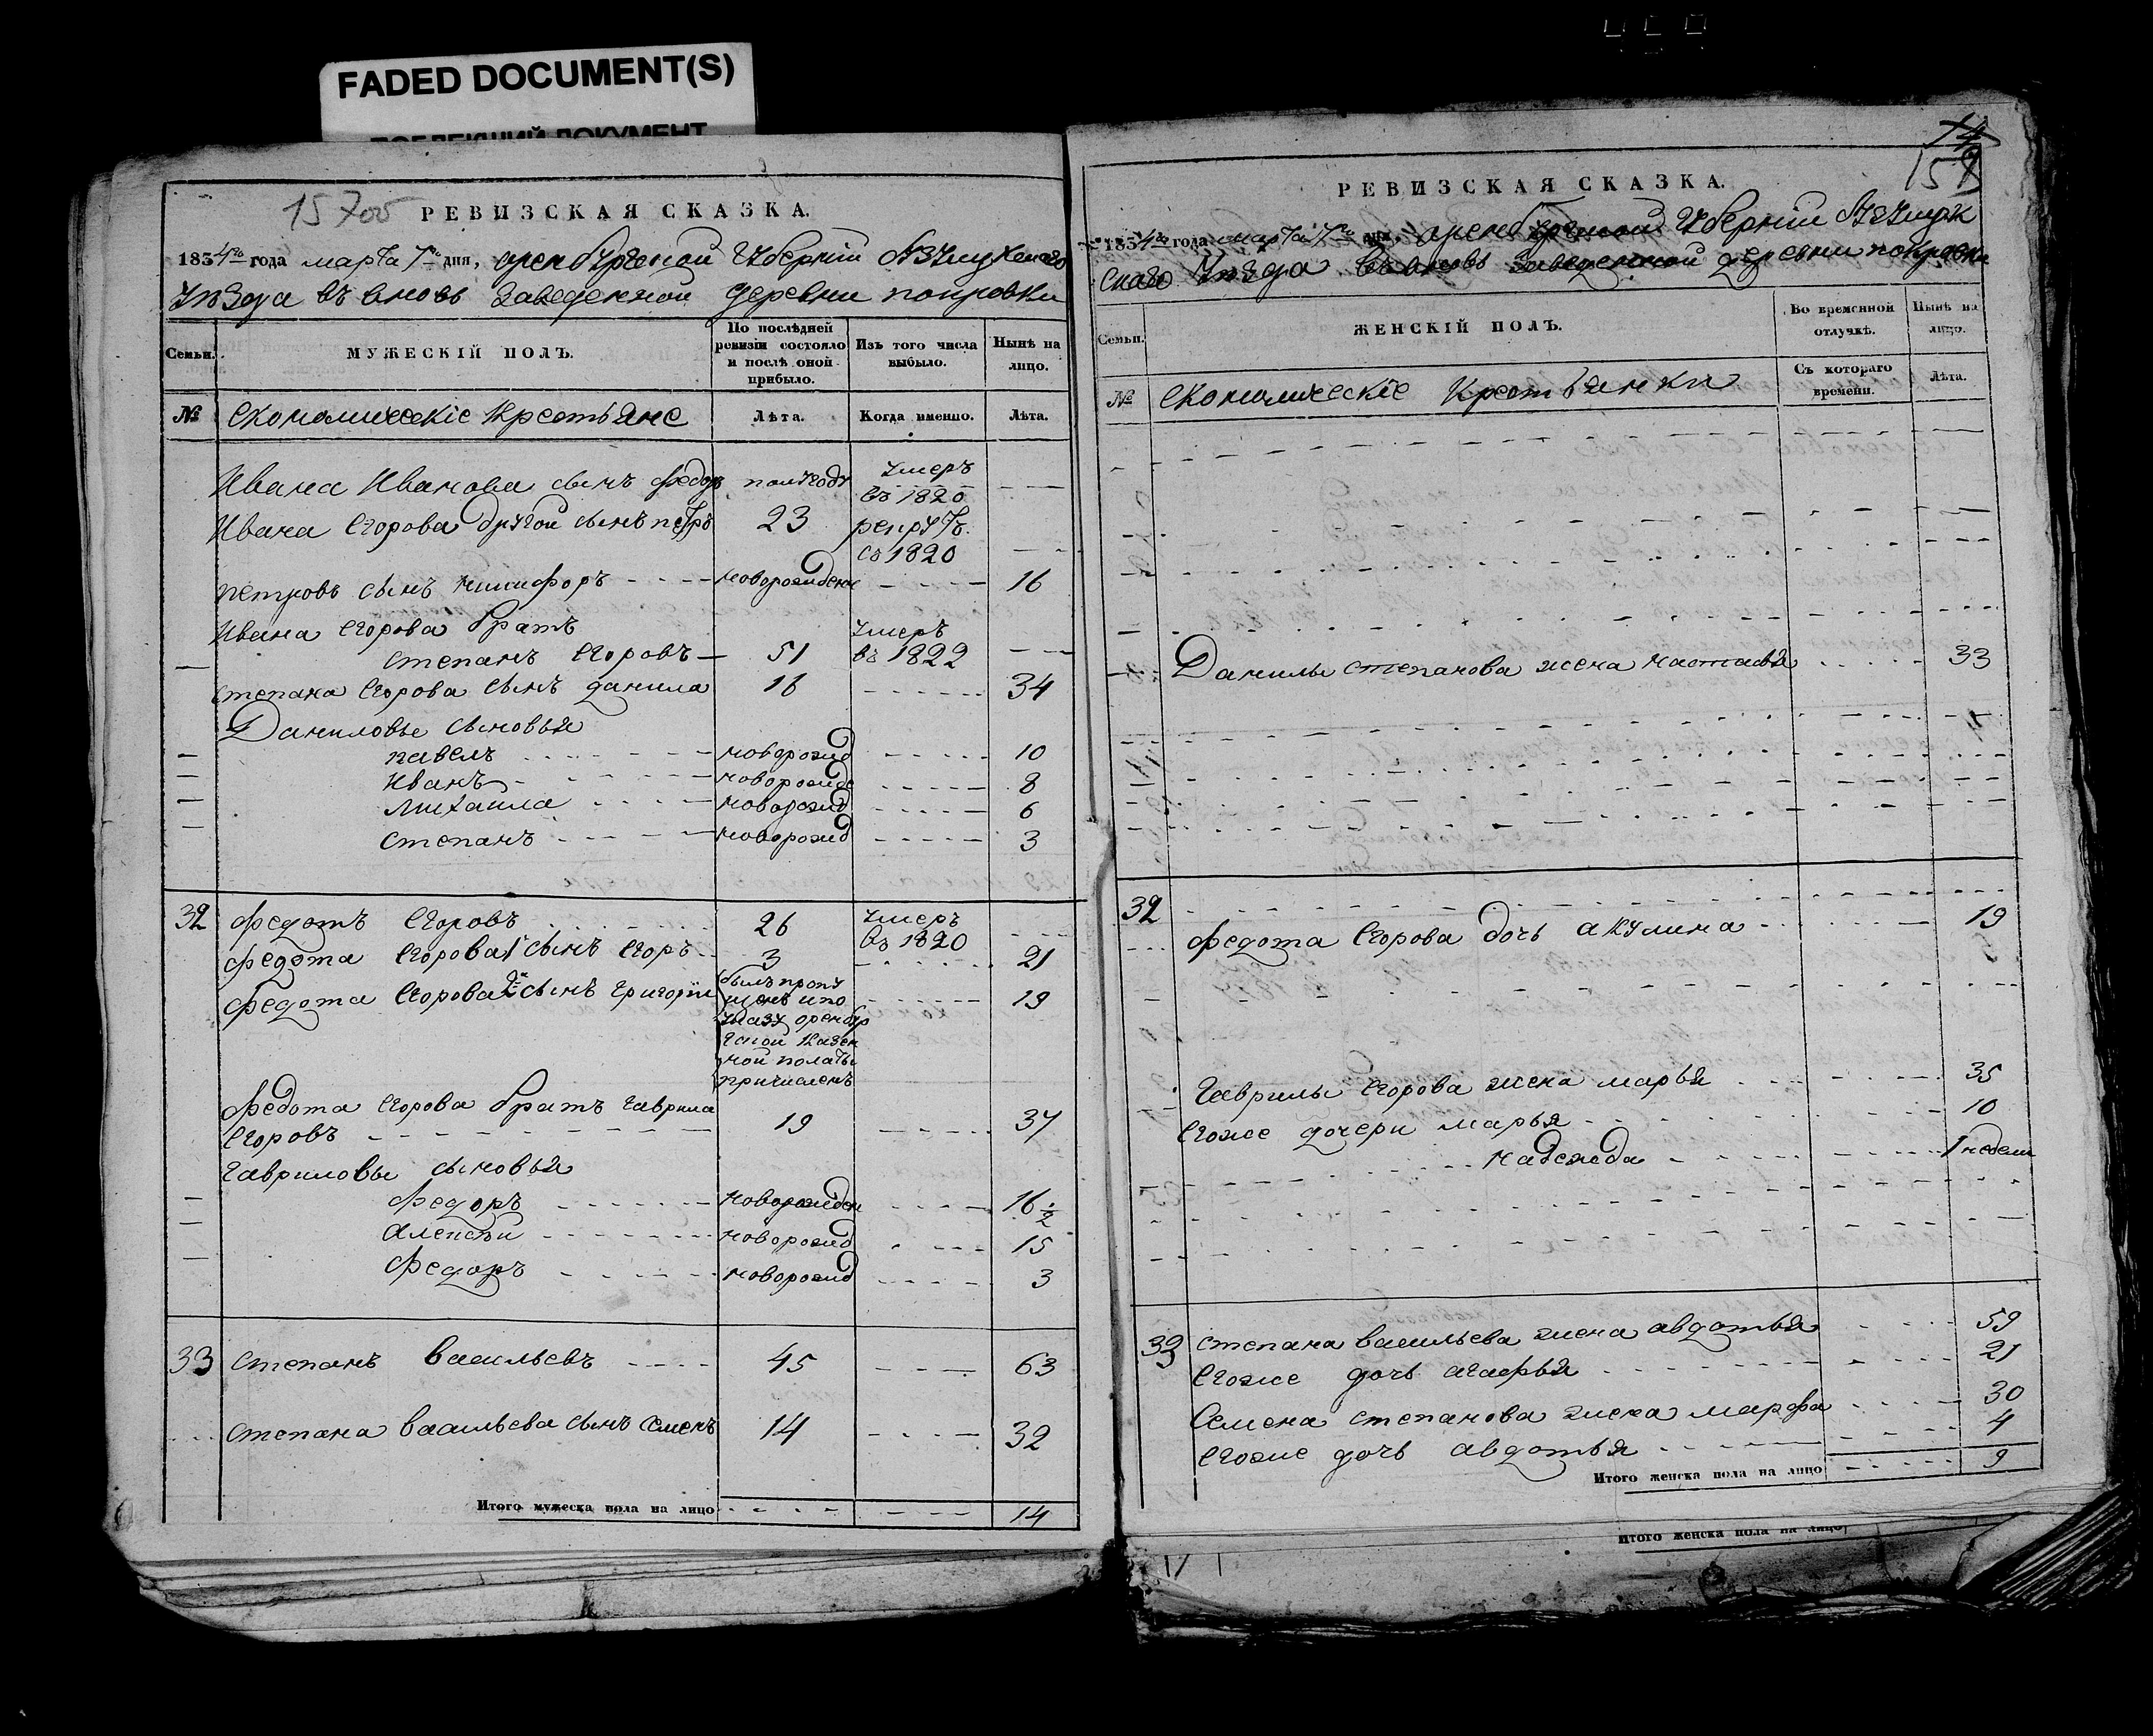 FADED DOCUMENT(S)
15 700
РЕВИЗСКАЯ СКАЗКА.
1834го года марта 7го дня, оренбургской губерній Бузулукскаго
уезда въ вновь заведенной деревни покровки
Семьи.
МУЖЕСКІЙ ПОЛЪ.
По послѣдней ревизіи состояло и послѣ оной прибыло.
Изъ того числа выбыло.
Нынѣ на лицо.
№
Економическіе Крестьяне
Лѣта.
Когда именно.
Лѣта.
Ивана Иванова сынъ федоръ полугоду умеръ въ 1820
Ивана Егорова другой сынъ петръ 23 рекрутъ съ 1820
петровъ сынъ никифоръ новорожден 16
Ивана Егорова братъ
степанъ Егоровъ 51 умеръ въ 1822
степана Егорова сынъ данила 16 34
Даниловы сыновья
павелъ новорожд 10
Иванъ новорожд 8
Михаила новорожд 6
степанъ новорожд 3
32 федотъ Егоровъ 26 умеръ въ 1820
федота Егорова 1 сынъ Егоръ 3 21
федота Егорова 2й сынъ григорій 19
былъ пропу
щенъ и по
указу оренбур
гской Казен
ной полаты
причисленъ
федота Егорова братъ гаврила
Егоровъ 19 37
гавриловы сыновья
федоръ новорожден 16 ½
алексѣй новорожд 15
федоръ новорожд 3
33 степанъ васильевъ 45 63
степана васильева сынъ семенъ 14 32
Итого мужеска пола на лицо 14
14
151
РЕВИЗСКАЯ СКАЗКА.
1834го года марта 7го дня, оренбургской губерній Бузулук
скаго уезда въ вновь заведенной деревни покровки
Семьи.
ЖЕНСКІЙ ПОЛЪ.
Во временной отлучкѣ.
Нынѣ на лицо.
№
Економическіе Крестьянки
Съ котораго времени.
Лѣта.
Данилы степанова жена настасья 33
32
федота Егорова дочь акулина 19
Гаврилы Егорова жена марья 35
Егоже дочери марья 10
надежда 1 недели
33 степана васильева жена авдотья 59
Егоже дочь агафья 21
Семена степанова жена марфа 30
Егоже дочь авдотья 4
Итого женска пола на лицо 9
Итого женска пола на лицо